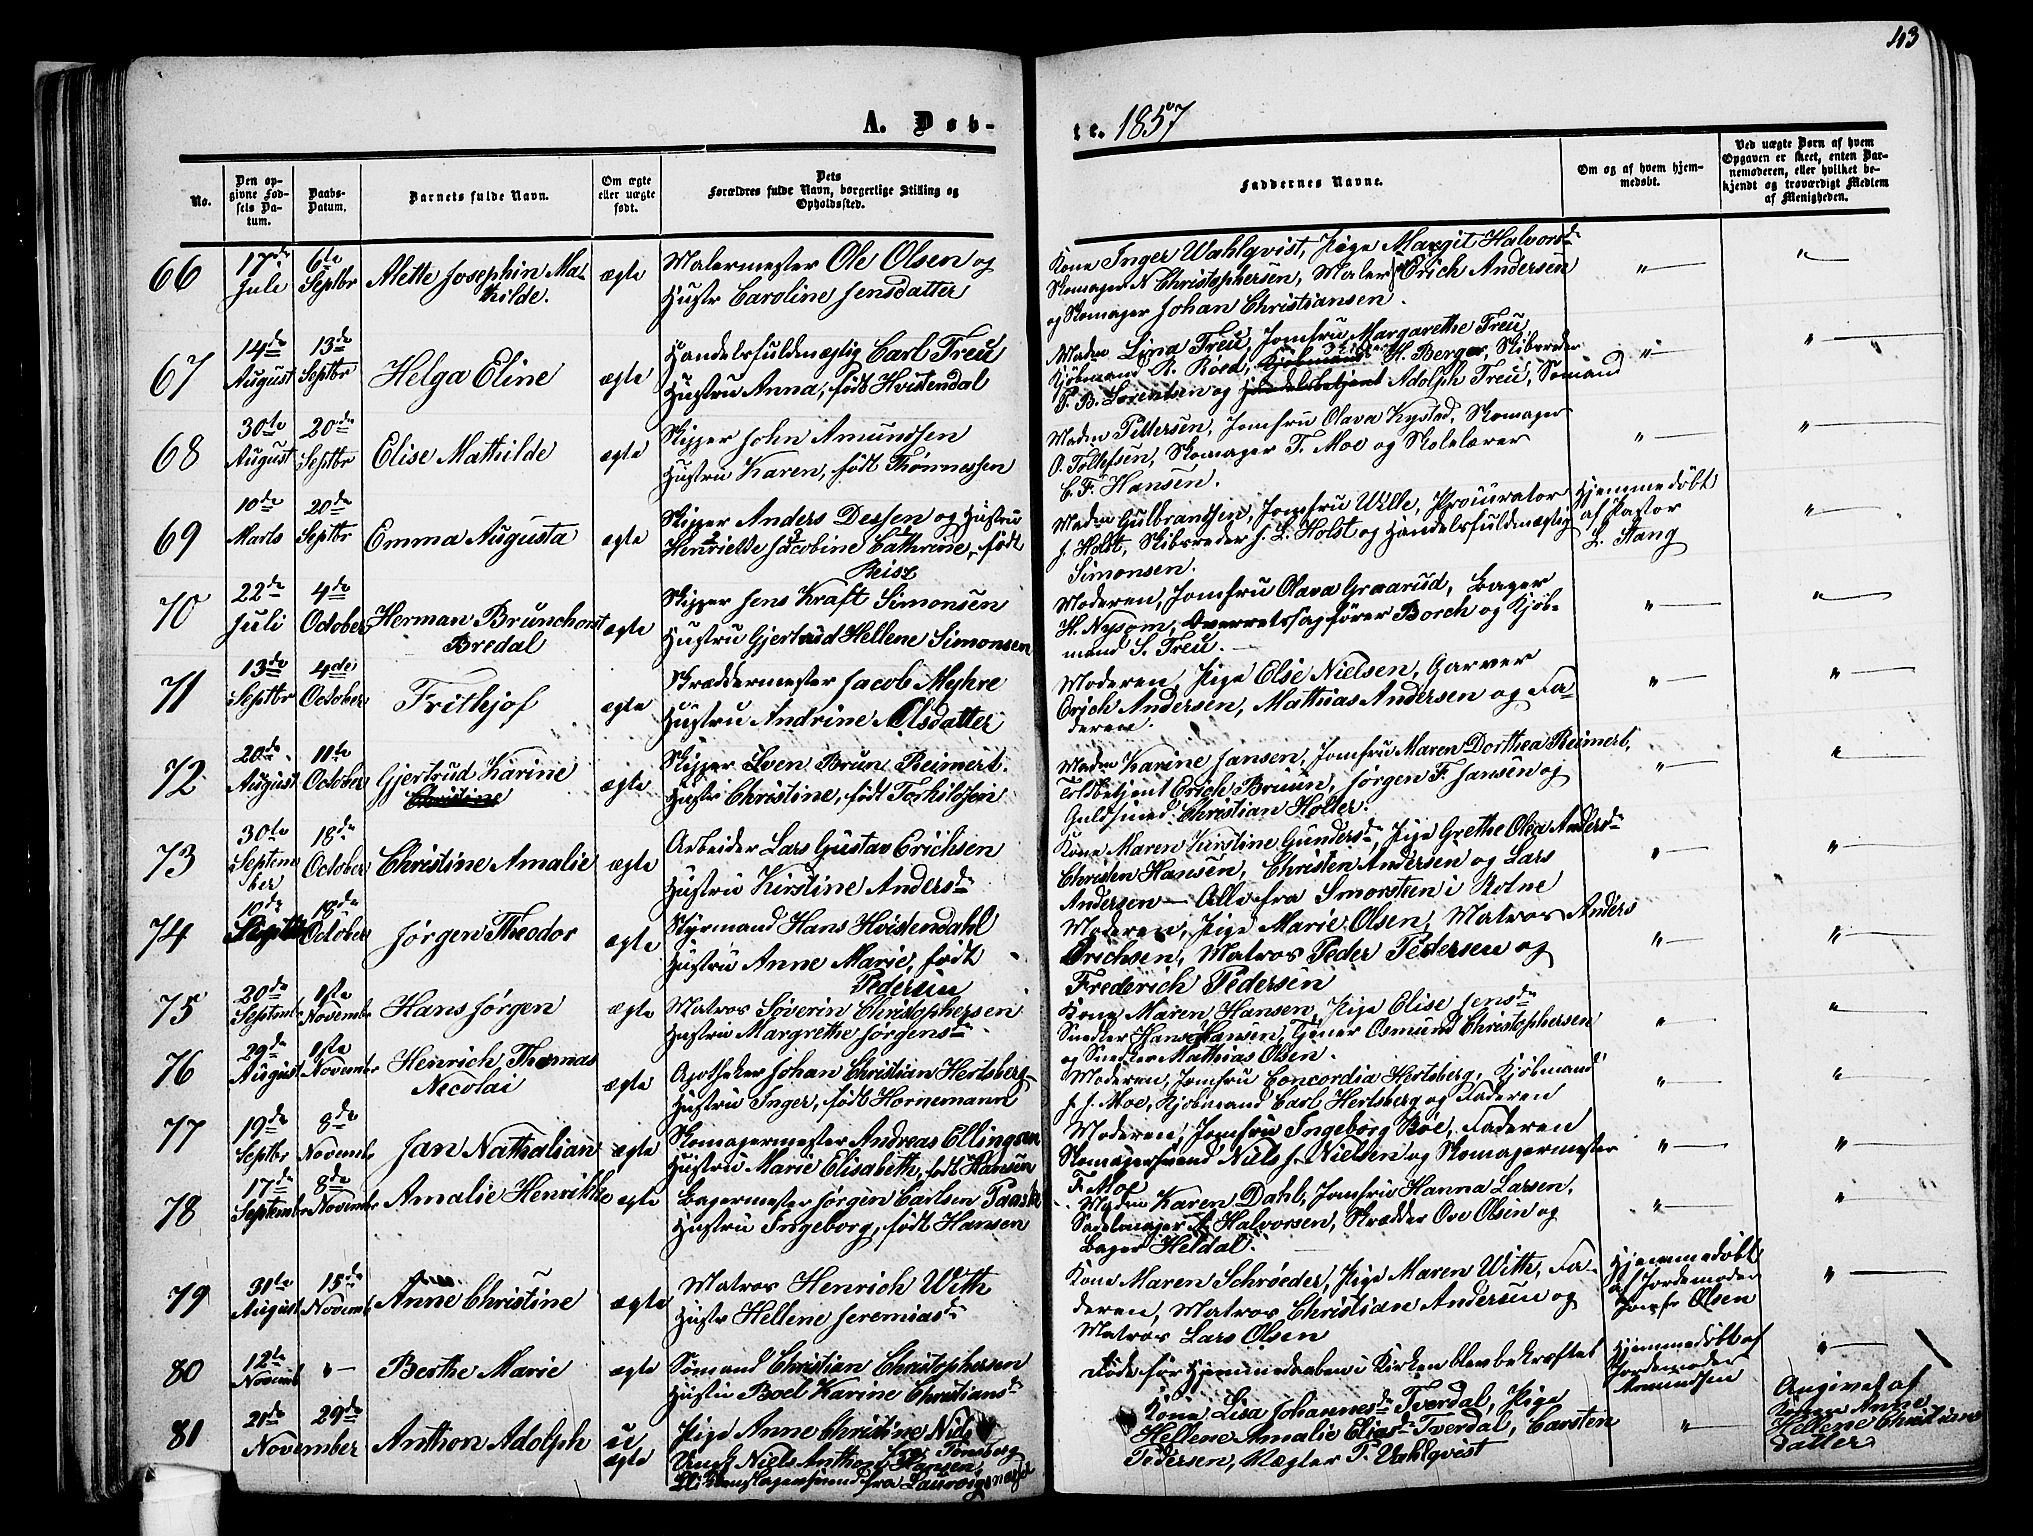 43
A. Døb-
te. 1857
No.
Den op-
givne Fød-
sels Da-
tum.
Daabs-
Datum.
Barnets fulde Navn.
Om ægte
eller uægte
født.
Dets
Forældres fulde Navn, borgerlige Stilling og
Opholdssted.
Faddernes Navne.
Om og af hvem hjem-
medøbt.
Ved uægte Børn af hvem
Opgaven er skeet, enten Bar-
nemoderen, eller hvilket be-
kjendt og troværdigt Medlem
af Menigheden.
66
17de
Jule
6te
Septbr
Alette Josephin Ma-
thilde.
ægte
Malermester Ole Olsen og
Hustr Caroline Jensdatter
Kone Inger Wahlqvist, Pige Margit Halvorsd
Skomager N Christophersen, Maler Erich Andersen
og Skomager Johan Christiansen.
67
14de
August
13de
Septbr
Helga Eline
ægte
Handelsfuldmægtig Carl Treu
Hustru Anna, født Hvistendal
Madm Lina Treu, Jomfru Margarethe Treu,
Kjøbmand R. Roed, Kjøbmand H. Berger, Skibsreder
F. B. Sørensen og Handelsbetjent Adolph Treu, Sømand
68
30te
August
20de
Septbr
Elise Mathilde
ægte
Skipper John Amundsen
Hustru Karen, født Thønnessen
Madm Pettersen, Jomfru Olava Kysted, Skomager
O. Tollefsen, Skomager F. Moe og Skolelærer
C. F. Hansen.
69
10de
Marts
20de
Septbr
Emma Augusta
ægte
Skipper Anders Dessen og Hustru
Henriette Jacobine Cathrine, født
Reisz
Madm Gulbrandsen, Jomfru Wille, Procurator
J. Holst, Skibsreder J. L. Holst og Handelsfuldmægtig
Simonsen.
Hjemmedøbt
af Pastor
L. Stang
70
22de
Juli
4de
October
Herman Brunchorst
Bredal
ægte
Skipper Jens Kraft Simonsen
Hustru Gjertrud Hellene Simonsen
Moderen, Jomfru Olava Graarud, Bager
H. Nysom, Overretssagfører Borch og Kjøb-
mand S. Treu.
71
13de
Septbr
4de
October
Frithjof
ægte
Skræddermester Jacob Myhre
Hustru Andrine Olsdatter
Moderen, Pige Else Nielsen, Garver
Erich Andersen, Mathias Andersen og Fa-
deren.
72
20de
August
11te
October
Gjertrud Karine
Christine
ægte
Skipper Iven Brun Reimert.
Hustr Christine, født Torkildsen
Madm Karine Jansen, Jomfru Maren Dorthea Reimert,
Toldbetjent Erich Bruun, Jørgen F. Jansen og
Guldsmed Christian Holter.
73
30te
Septem
ber
18de
October
Christine Amalie
ægte
Arbeider Lars Gustav Erichsen
Hustru Kirstine Andersd
Kone Maren Kirstine Gundersd, Pige Grethe Olea Andersd
Christen Hansen, Christen Andersen og Lars
Andersen – Alle fra Smørsteen i Botne
74
10de
Septbr
18de
October
Jørgen Theodor
ægte
Styrmand Hans Hvistendahl
Hustru Anne Marie, født
Pedersen
Moderen, Pige Marie Olsen, Matros Anders
Erichsen, Matros Peder Pedersen og
Frederich Pedersen
75
20de
Septembr
1ste
Novembr
Hans Jørgen
ægte
Matros Søverin Christophersen
Hustru Margrethe Jørgensd
Kone Maren Hansen, Pige Elise Jensd
Snedker Hans Hansen, Tjener Osmund Christophersen
og Snedker Mathias Olsen.
76
29de
August
1ste
Novembr
Henrich Thomas
Necolai
ægte
Apotheker Johan Christian Hertsberg
Hustru Inger, født Hornemann
Moderen, Jomfru Concordia Hertsberg, Kjøbmand
J. J. Moe, Kjøbmand Carl Hertsberg og Faderen
77
19de
Septbr
8de
Novembr
Jan Nathalian
ægte
Skomagermester Andreas Ellingsen
Hustru Marie Elisabeth, født Hansen
Moderen, Jomfru Ingeborg Roe, Faderen
Skomagersvend Niels J. Nielsen og Skomagermester
F. Moe
78
17de
Septembr
8de
Novembr
Amalie Henrikke
ægte
Bagermester Jørgen Carlsen Paaske
Hustru Ingeborg, født Hansen
Madm Karen Dahl, Jomfru Hanna Larsen,
Sadelmager A. Halvorsen, Skrædder Ove Olsen og
Bager Heldal.
79
31te
August
15de
Novemb.
Anne Christine
ægte
Matros Henrich With
Hustr Hellene Jeremiasd
Kone Maren Schrøeder, Pige Maren With, Fa-
deren, Matros Christian Andersen og
Matros Lars Olsen
Hjemmedøbt
af Jordemoder
Jomfr Olsen
80
12te
Novemb
Berthe Marie
ægte
Sømand Christian Christophersen
Hustru Boel Karine Christiansd
Døde før Hjemmedaaben i Kirken blev bekræftet
Hjemmedøbt af
Jordemoder
Amundsen
81
21de
29de
November
Anthon Adolph
uægte
Pige Anne Christine
Ungk Niels Anthon Hansen,
fra Tønsberg
fra Laurvig
Kone Lisa Johannesd Tverdal, Pige
Hellene Amalie Eliasd Tverdal, Carsten
Pedersen, Vægter P. Wahlqvist
Angivet af
Konen Anne
Hellene Christians
datter